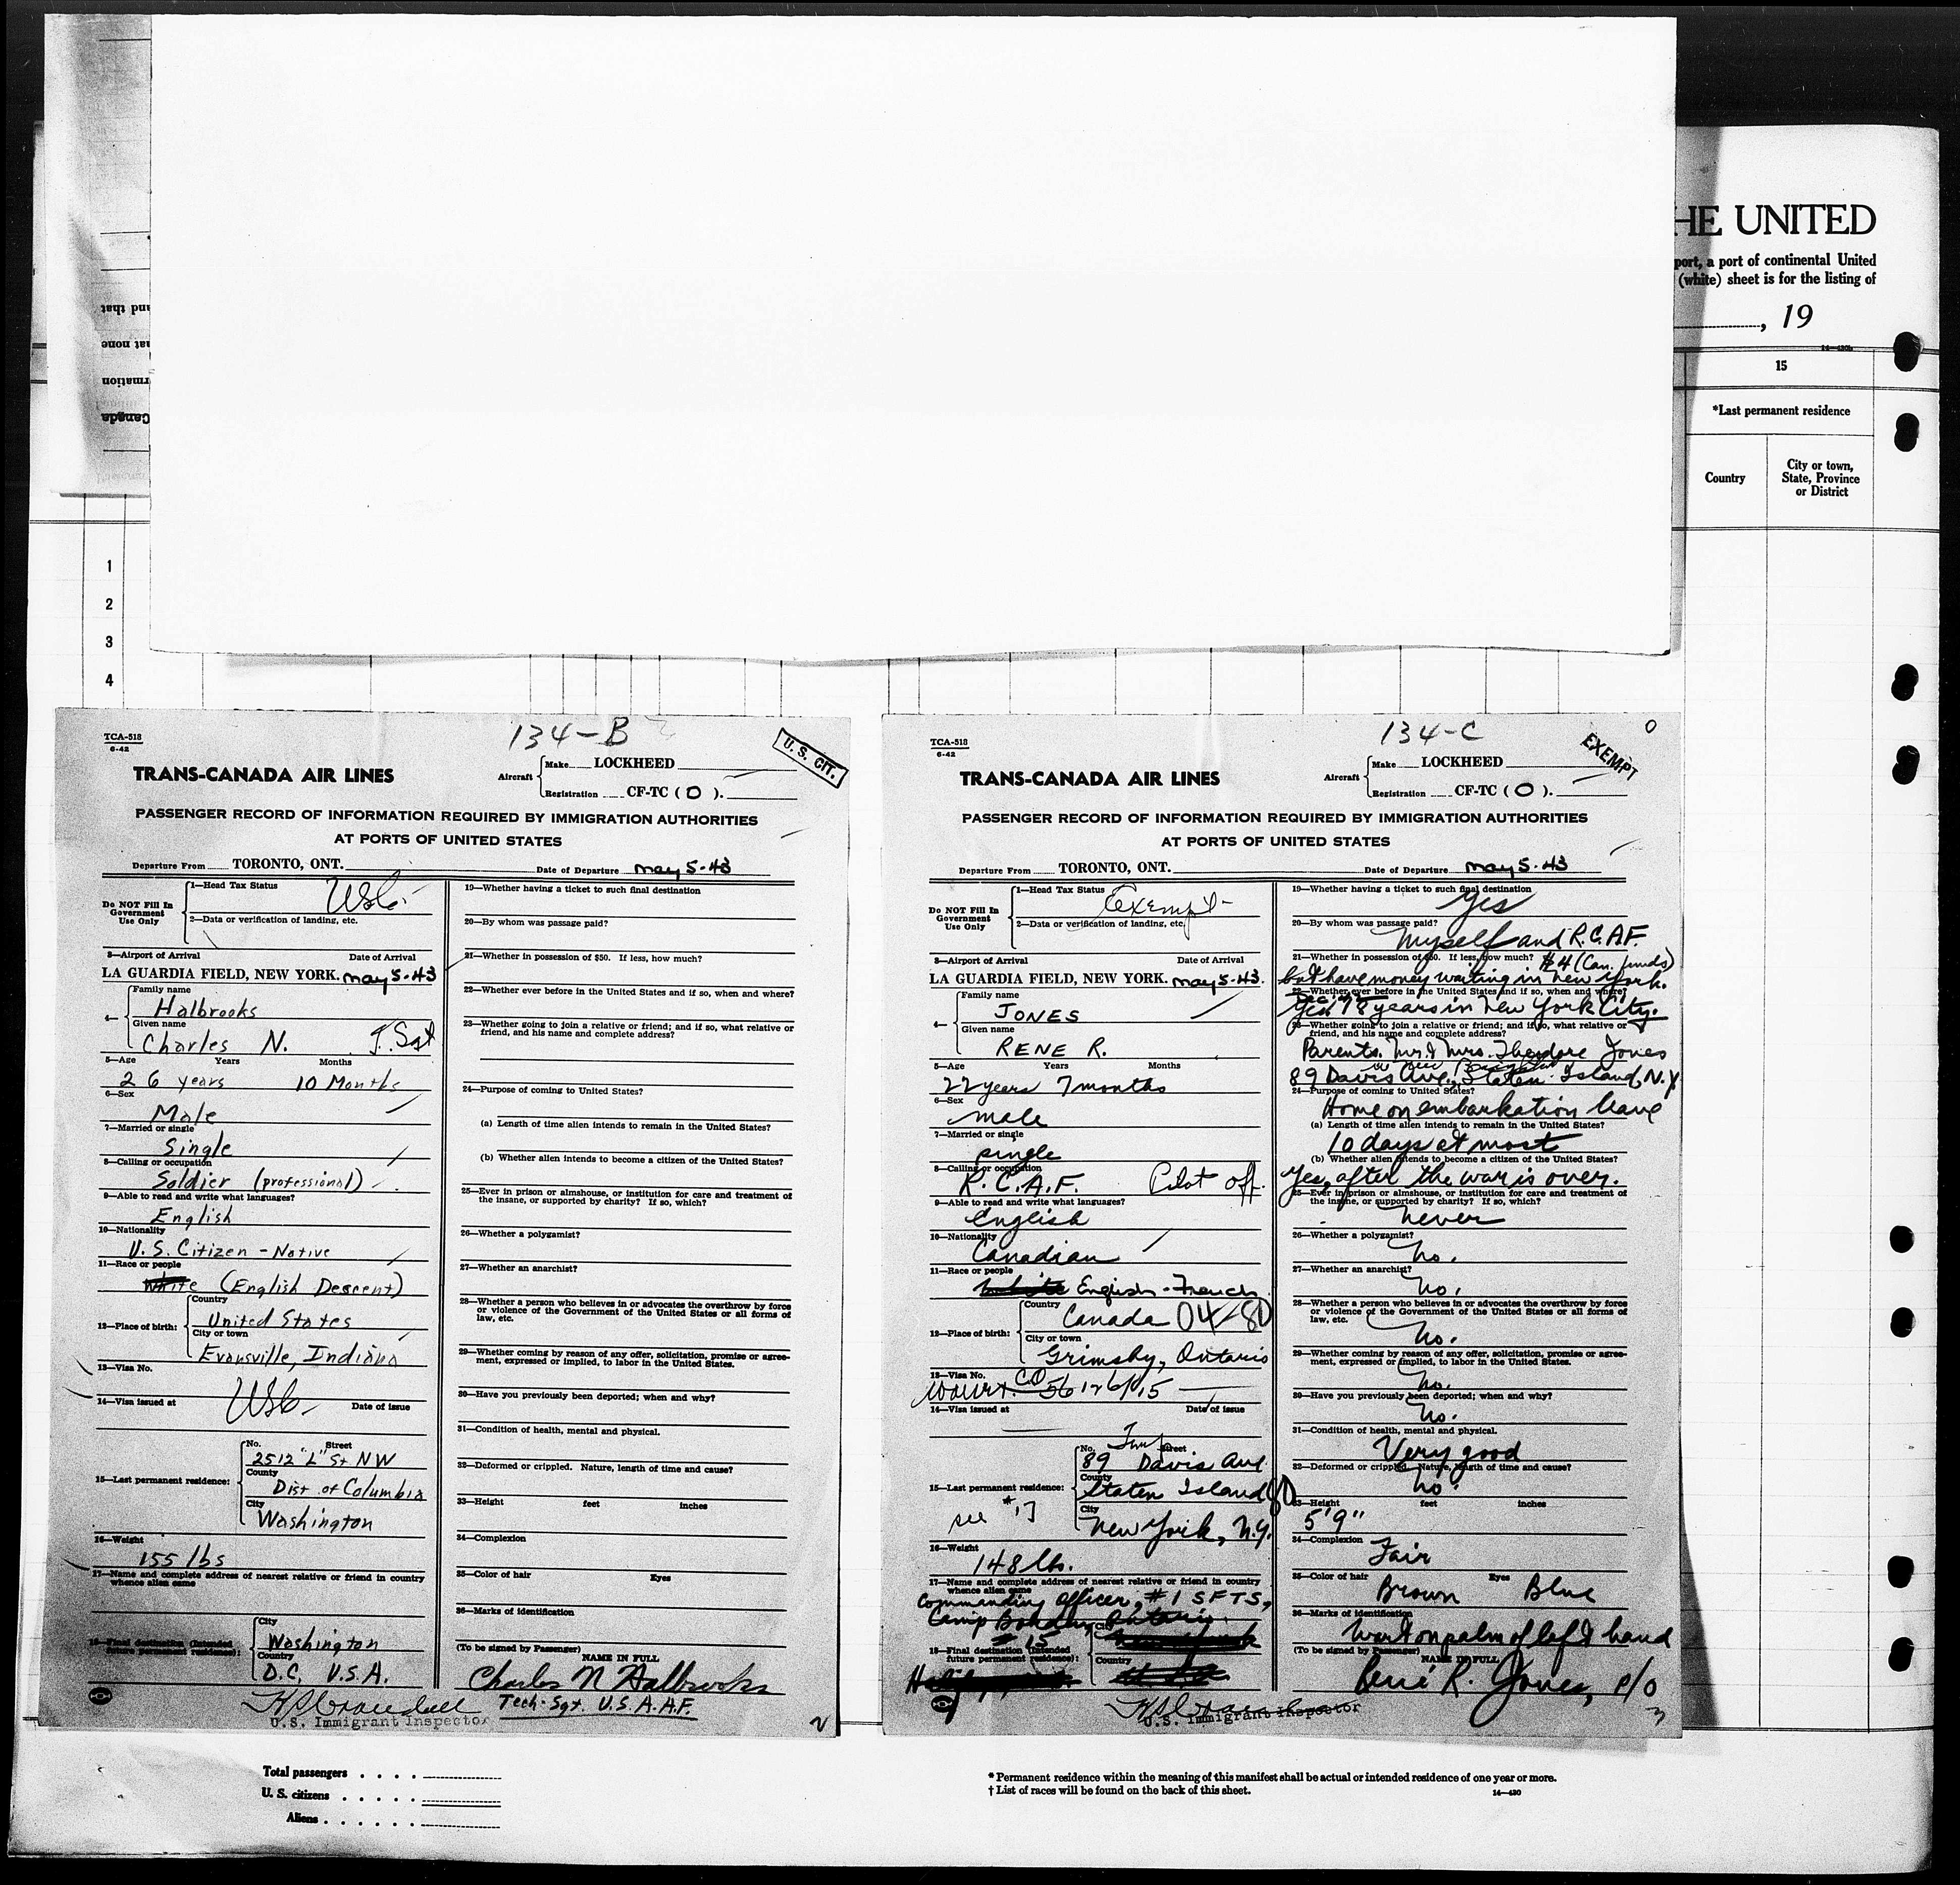 HE UNITED
port, a port of continental United
(white) sheet is for the listing of
, 19
14—430b
15
*Last permanent residence
Country
City or town,
State, Province
or District
and that
hat none
rmation
Canada
1
2
3
4
134-B
TCA-518
6-42
U. S. CIT.
TRANS-CANADA AIR LINES
Aircraft
Make LOCKHEED
Registration CF-TC ( O ).
PASSENGER RECORD OF INFORMATION REQUIRED BY IMMIGRATION AUTHORITIES
AT PORTS OF UNITED STATES
Departure From TORONTO, ONT. Date of Departure May 5-43
Do NOT Fill In
Government
Use Only
1—Head Tax Status USC
2—Data or verification of landing, etc.
3—Airport of Arrival Date of Arrival
LA GUARDIA FIELD, NEW YORK. May 5-43
4—
Family name
Halbrooks
Given name
Charles N. T. Sgt
5—Age Years Months
26 years 10 Months
6—Sex
Male
7—Married or single
Single
8—Calling or occupation
Soldier (professional)
9—Able to read and write what languages?
English
10—Nationality
U. S. Citizen - Native
11—Race or people
White (English Descent)
12—Place of birth:
Country
United States
City or town
Evansville, Indiana
13—Visa No.
USC
14—Visa issued at Date of issue
15—Last permanent residence:
No. Street
2512 "L" St NW
County
Dist of Columbia
City
Washington
16—Weight
155 lbs
17—Name and complete address of nearest relative or friend in country
whence alien came
18—Final destination (Intended
future permanent residence):
City
Washington
Country
D.C. U.S.A.
U.S. Immigrant Inspector
19—Whether having a ticket to such final destination
20—By whom was passage paid?
21—Whether in possession of $50. If less, how much?
22—Whether ever before in the United States and if so, when and where?
23—Whether going to join a relative or friend; and if so, what relative or
friend, and his name and complete address?
24—Purpose of coming to United States?
(a) Length of time alien intends to remain in the United States?
(b) Whether alien intends to become a citizen of the United States?
25—Ever in prison or almshouse, or institution for care and treatment of
the insane, or supported by charity? If so, which?
26—Whether a polygamist?
27—Whether an anarchist?
28—Whether a person who believes in or advocates the overthrow by force
or violence of the Government of the United States or all forms of
law, etc.
29—Whether coming by reason of any offer, solicitation, promise or agree-
ment, expressed or implied, to labor in the United States.
30—Have you previously been deported; when and why?
31—Condition of health, mental and physical.
32—Deformed or crippled. Nature, length of time and cause?
33—Height feet inches
34—Complexion
35—Color of hair Eyes
36—Marks of identification
(To be signed by Passenger)
NAME IN FULL
Charles N Halbrooks
Tech. Sgt. U.S.A.A.F.
2
134-C
0
TCA-518
6-42
EXEMPT
TRANS-CANADA AIR LINES
Aircraft
Make LOCKHEED
Registration CF-TC ( O ).
PASSENGER RECORD OF INFORMATION REQUIRED BY IMMIGRATION AUTHORITIES
AT PORTS OF UNITED STATES
Departure From TORONTO, ONT. Date of Departure May 5-43
Do NOT Fill In
Government
Use Only
1—Head Tax Status Exempt
2—Data or verification of landing, etc.
3—Airport of Arrival Date of Arrival
LA GUARDIA FIELD, NEW YORK. May 5-43.
4—
Family name
JONES
Given name
RENE R.
5—Age Years Months
22 years 7 months
6—Sex
male
7—Married or single
single
8—Calling or occupation
R.C.A.F. Pilot off.
9—Able to read and write what languages?
English
10—Nationality
Canadian
11—Race or people
White English-French
12—Place of birth:
Country
Canada 04-80
City or town
Grimsby, Ontario
13—Visa No.
14—Visa issued at Date of issue
15—Last permanent residence:
see #17
No. Street
89 Davis Ave.
County
Staten Island
City
New York, N.Y.
16—Weight
148 lbs.
17—Name and complete address of nearest relative or friend in country
whence alien came
Commanding Officer, #1 SFTS,
Camp Borden, Ontario.
18—Final destination (Intended
future permanent residence):
# 15
City
Country
U.S. Immigrant Inspector
19—Whether having a ticket to such final destination
Yes
20—By whom was passage paid?
Myself and R.C.A.F.
21—Whether in possession of $50. If less, how much? $4 (Can. funds)
but have money waiting in New York.
22—Whether ever before in the United States and if so, when and where?
Yes 18 years in New York City.
23—Whether going to join a relative or friend; and if so, what relative or
friend, and his name and complete address?
Parents. Mr. & Mrs. Theodore Jones
89 Davis Ave., Staten Island, N.Y.
24—Purpose of coming to United States?
Home on embarkation leave
(a) Length of time alien intends to remain in the United States?
10 days at most
(b) Whether alien intends to become a citizen of the United States?
Yes, after the war is over.
25—Ever in prison or almshouse, or institution for care and treatment of
the insane, or supported by charity? If so, which?
never
26—Whether a polygamist?
No.
27—Whether an anarchist?
No.
28—Whether a person who believes in or advocates the overthrow by force
or violence of the Government of the United States or all forms of
law, etc.
No.
29—Whether coming by reason of any offer, solicitation, promise or agree-
ment, expressed or implied, to labor in the United States.
No.
30—Have you previously been deported; when and why?
No.
31—Condition of health, mental and physical.
Very good
32—Deformed or crippled. Nature, length of time and cause?
No.
33—Height feet inches
5'9"
34—Complexion
Fair
35—Color of hair Eyes
Brown Blue
36—Marks of identification
Wart on palm of left hand
(To be signed by Passenger)
NAME IN FULL
René R. Jones, P/O
3
Total passengers
U. S. citizens
Aliens
* Permanent residence within the meaning of this manifest shall be actual or intended residence of one year or more.
† List of races will be found on the back of this sheet.
14—430